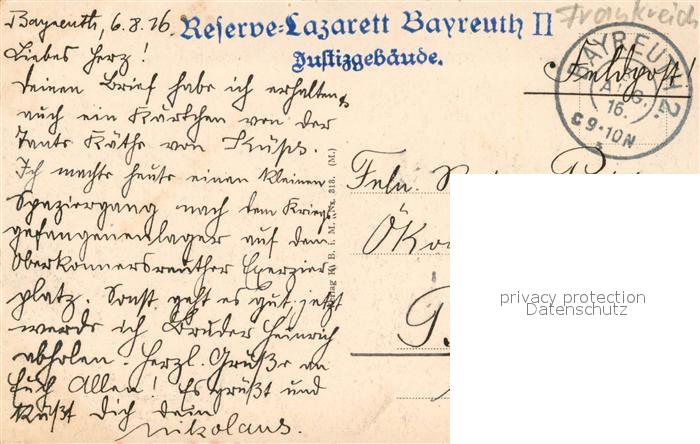 Bayreuth, 6.8.16.
Reserve-Lazarett Bayreuth II
Justizgebäude.
Frankreich
Feldpost!
BAYREUTH 2.
AUG.
16.
C 9-10 N
Liebes Herz!
Deinen Brief habe ich erhalten,
auch ein Kärtchen von der
Tante Käthe von Küps.
Ich machte heute einen kleinen
Spaziergang nach dem Kriegs-
gefangenenlager auf dem
Oberkonnersreuther Exerzier
platz. Sonst geht es gut, jetzt
werde ich Bruder Heinrich
abholen. Herzl. Grüße an
Euch Allen! Es grüßt und
Küßt Dich Dein
Nikolaus.
Verlag H. B. i. M. Nr. 313. (M.)
Feln.
Öko
privacy protection
Datenschutz